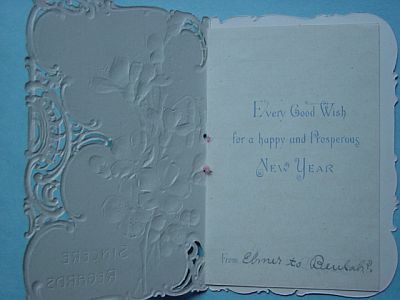 SINCERE
REGARDS
Every Good Wish
for a happy and Prosperous
NEW YEAR
From Elmer to Beulah P.